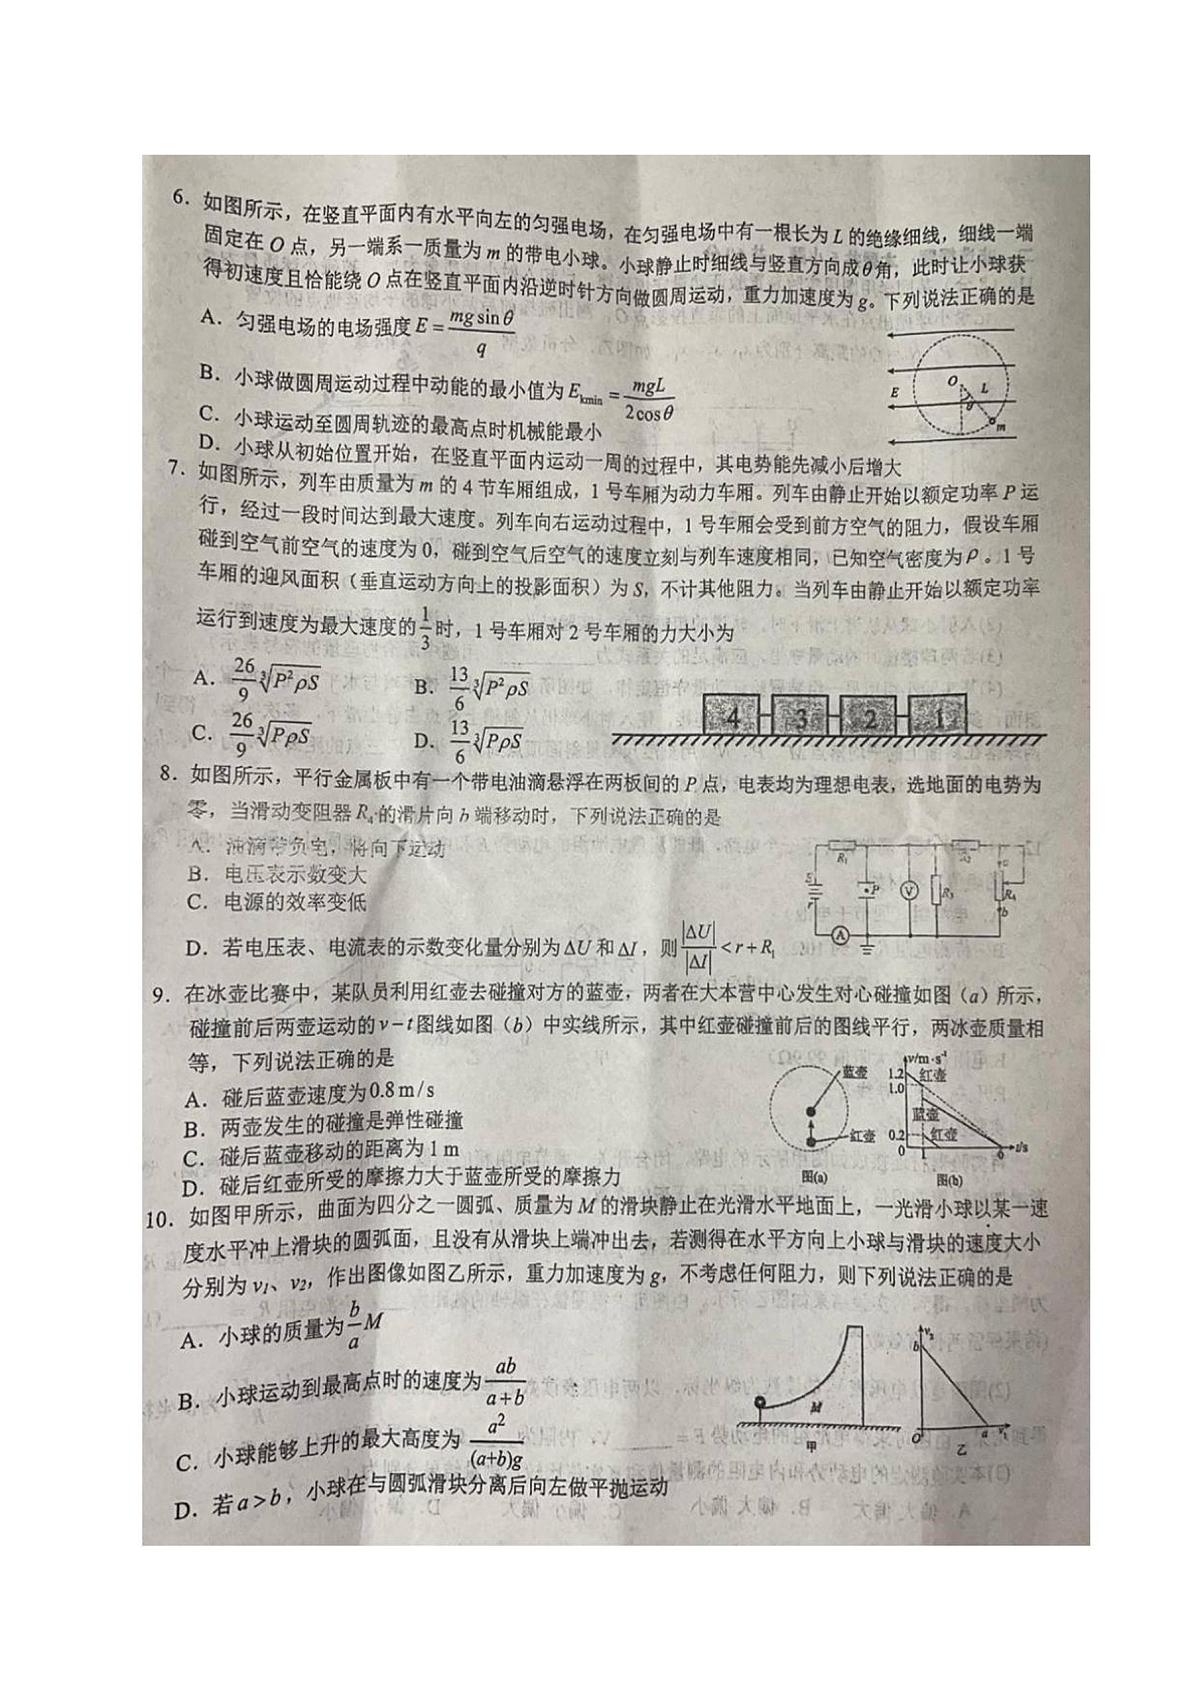 6. 如图所示，在竖直平面内有水平向左的匀强电场，在匀强电场中有一根长为 L 的绝缘细线，细线一端
固定在 O 点，另一端系一质量为 m 的带电小球。小球静止时细线与竖直方向成θ角，此时让小球获
得初速度且恰能绕 O 点在竖直平面内沿逆时针方向做圆周运动，重力加速度为 g。下列说法正确的是
A. 匀强电场的电场强度 E = mg sin θ / q
B. 小球做圆周运动过程中动能的最小值为 Ekmin = mgL / 2cosθ
C. 小球运动至圆周轨迹的最高点时机械能最小
D. 小球从初始位置开始，在竖直平面内运动一周的过程中，其电势能先减小后增大
E O L θ m
7. 如图所示，列车由质量为 m 的 4 节车厢组成，1 号车厢为动力车厢。列车由静止开始以额定功率 P 运
行，经过一段时间达到最大速度。列车向右运动过程中，1 号车厢会受到前方空气的阻力，假设车厢
碰到空气前空气的速度为 0，碰到空气后空气的速度立刻与列车速度相同，已知空气密度为ρ。1 号
车厢的迎风面积（垂直运动方向上的投影面积）为 S，不计其他阻力。当列车由静止开始以额定功率
运行到速度为最大速度的 1/3 时，1 号车厢对 2 号车厢的力大小为
A. 26/9 ∛(P²ρS) B. 13/6 ∛(P²ρS)
C. 26/9 ∛(PρS) D. 13/6 ∛(PρS)
4 3 2 1
8. 如图所示，平行金属板中有一个带电油滴悬浮在两板间的 P 点，电表均为理想电表，选地面的电势为
零，当滑动变阻器 R₄ 的滑片向 b 端移动时，下列说法正确的是
A. 油滴带负电，将向下运动
B. 电压表示数变大
C. 电源的效率变低
D. 若电压表、电流表的示数变化量分别为 ΔU 和 ΔI，则 |ΔU|/|ΔI| < r + R₁
R₁ P V R₃ R₄ b A
9. 在冰壶比赛中，某队员利用红壶去碰撞对方的蓝壶，两者在大本营中心发生对心碰撞如图（a）所示，
碰撞前后两壶运动的 v－t 图线如图（b）中实线所示，其中红壶碰撞前后的图线平行，两冰壶质量相
等，下列说法正确的是
A. 碰后蓝壶速度为 0.8 m/s
B. 两壶发生的碰撞是弹性碰撞
C. 碰后蓝壶移动的距离为 1 m
D. 碰后红壶所受的摩擦力大于蓝壶所受的摩擦力
蓝壶 红壶 图(a)
v/m·s⁻¹ 1.2 红壶 1.0 蓝壶 0.2 红壶 0 6 t/s 图(b)
10. 如图甲所示，曲面为四分之一圆弧、质量为 M 的滑块静止在光滑水平地面上，一光滑小球以某一速
度水平冲上滑块的圆弧面，且没有从滑块上端冲出去，若测得在水平方向上小球与滑块的速度大小
分别为 v₁、v₂，作出图像如图乙所示，重力加速度为 g，不考虑任何阻力，则下列说法正确的是
A. 小球的质量为 b/a M
B. 小球运动到最高点时的速度为 ab/(a+b)
C. 小球能够上升的最大高度为 a²/((a+b)g)
D. 若 a>b，小球在与圆弧滑块分离后向左做平抛运动
M 甲
v₂ b O a v₁ 乙